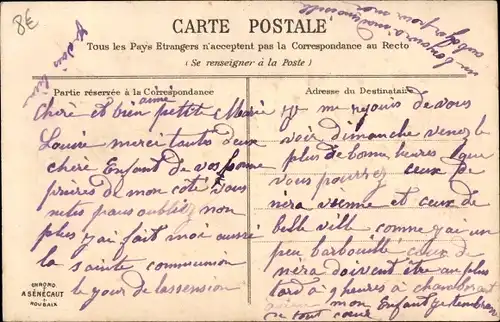 8€
un bonjour à mademoiselle
CARTE POSTALE
Tous les Pays Etrangers n'acceptent pas la Correspondance au Recto
(Se renseigner à la Poste)
Partie réservée à la Correspondance
Adresse du Destinataire
Cheré et bien aimé petite Marie
Louise merci toutes deux
cheré Enfant de vos bonne
prieres de mon coté vous
netes pas oubliez non
plus j'ai fait moi aussi
la sainte communion
le jour de lassension
CHRONO
A.SÉNÉCAUT
ROUBAIX
je me rejouis de vous
voir dimanche venez le
plus de bonne heures que
vous pourrez ceux de
nera vienne et ceux de
belle ville comme j'ai un
peu barbouillé ceux de
nera doivent être au plus
tard a 9 heures a chamborant
mon Enfant je tembrasse
de tout cœur